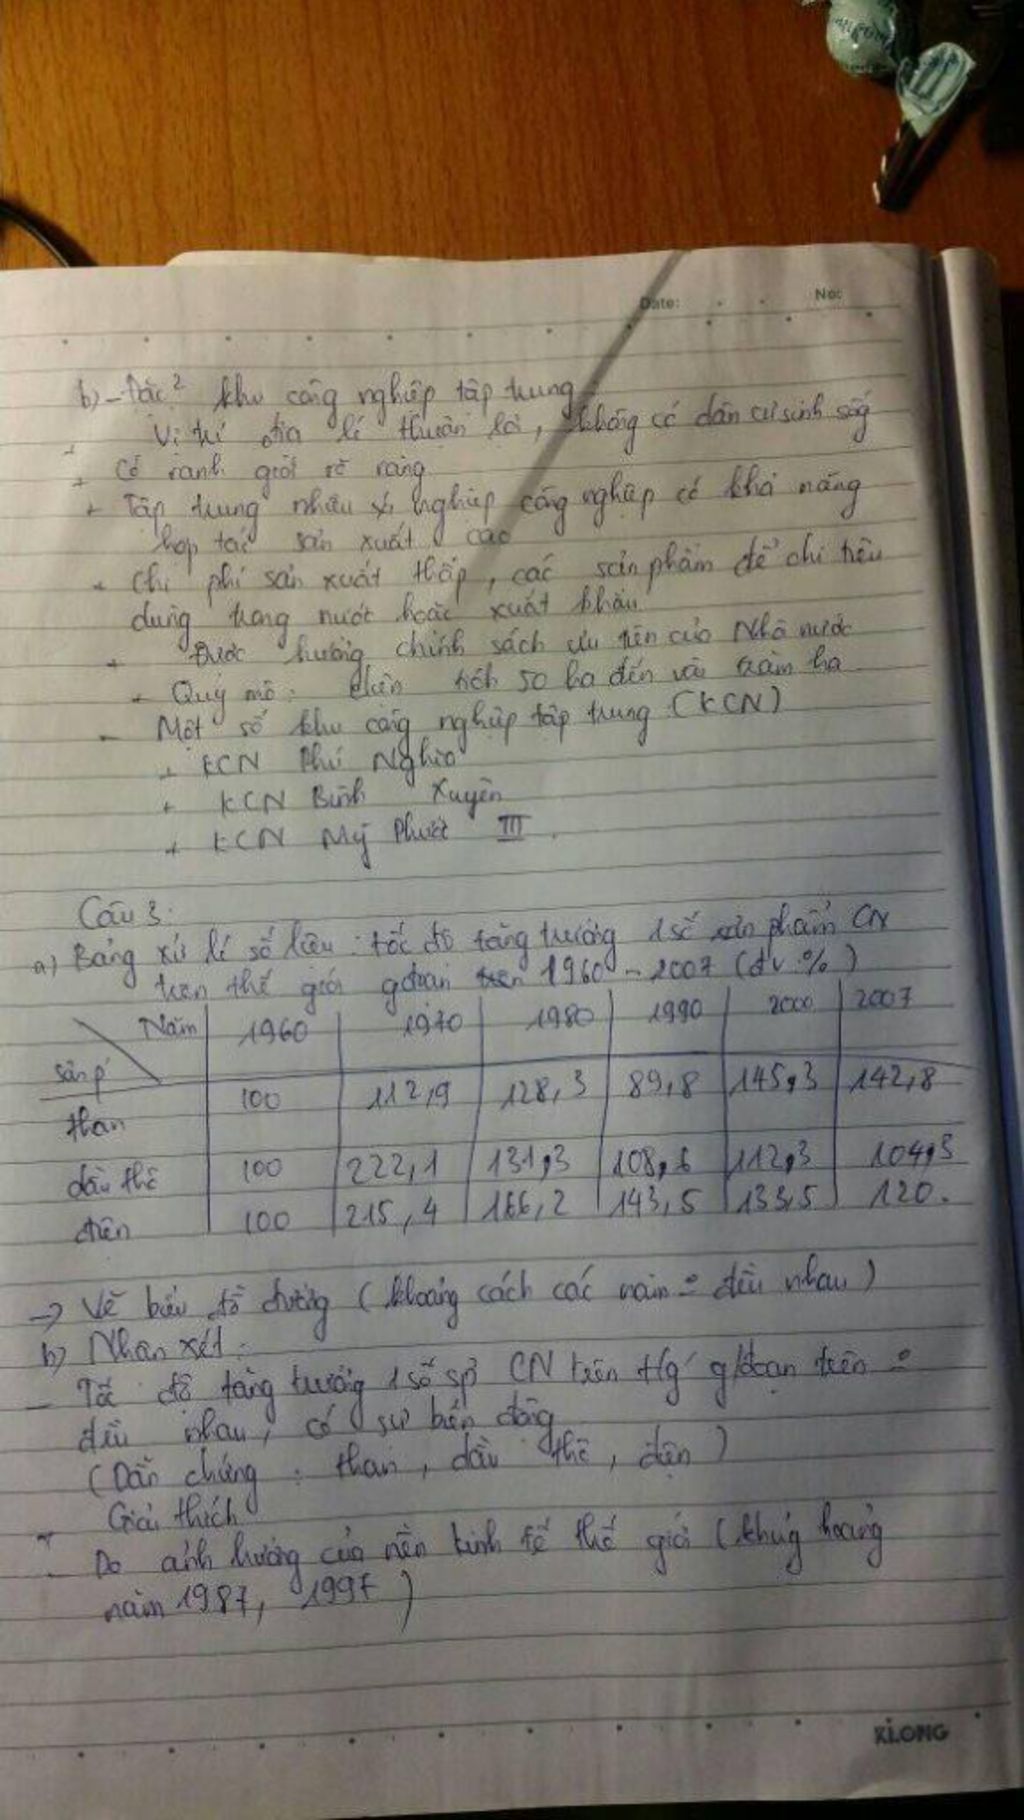 Date: No:
b) - Đặc² khu công nghiệp tập trung:
Vị trí địa lí thuận lợi, không có dân cư sinh sống
+ Có ranh giới rõ ràng
+ Tập trung nhiều xí nghiệp công nghiệp có khả năng
hợp tác sản xuất cao
+ Chi phí sản xuất thấp, các sản phẩm để chỉ tiêu
dùng trong nước hoặc xuất khẩu
+ Được hưởng chính sách ưu tiên của Nhà nước
+ Quy mô: 50 ha đến vài trăm ha
- Một số khu công nghiệp tập trung (KCN)
+ KCN Phú Nghĩa
+ KCN Bình Xuyên
+ KCN Mỹ Phước III.
Câu 3:
a) Bảng xử lí số liệu: tốc độ tăng trưởng 1 số sản phẩm CN
trên thế giới gđoạn 1960 - 2007 (đv: %)
Năm 1960 1970 1980 1990 2000 2007
Sản p'
than 100 112,9 128,3 89,8 145,3 142,8
dầu thô 100 222,1 131,3 108,6 112,3 104,5
điện 100 215,4 166,2 143,5 133,5 120.
-> Vẽ biểu đồ đường (khoảng cách các năm đều nhau)
b) Nhận xét:
- Tốc độ tăng trưởng 1 số sp' CN trên t/g' g/đoạn trên
đều nhau, có sự biến động
(Dẫn chứng: than, dầu thô, điện)
Giải thích
- Do ảnh hưởng của nền kinh tế thế giới (khủng hoảng
năm 1987, 1997)
KLONG